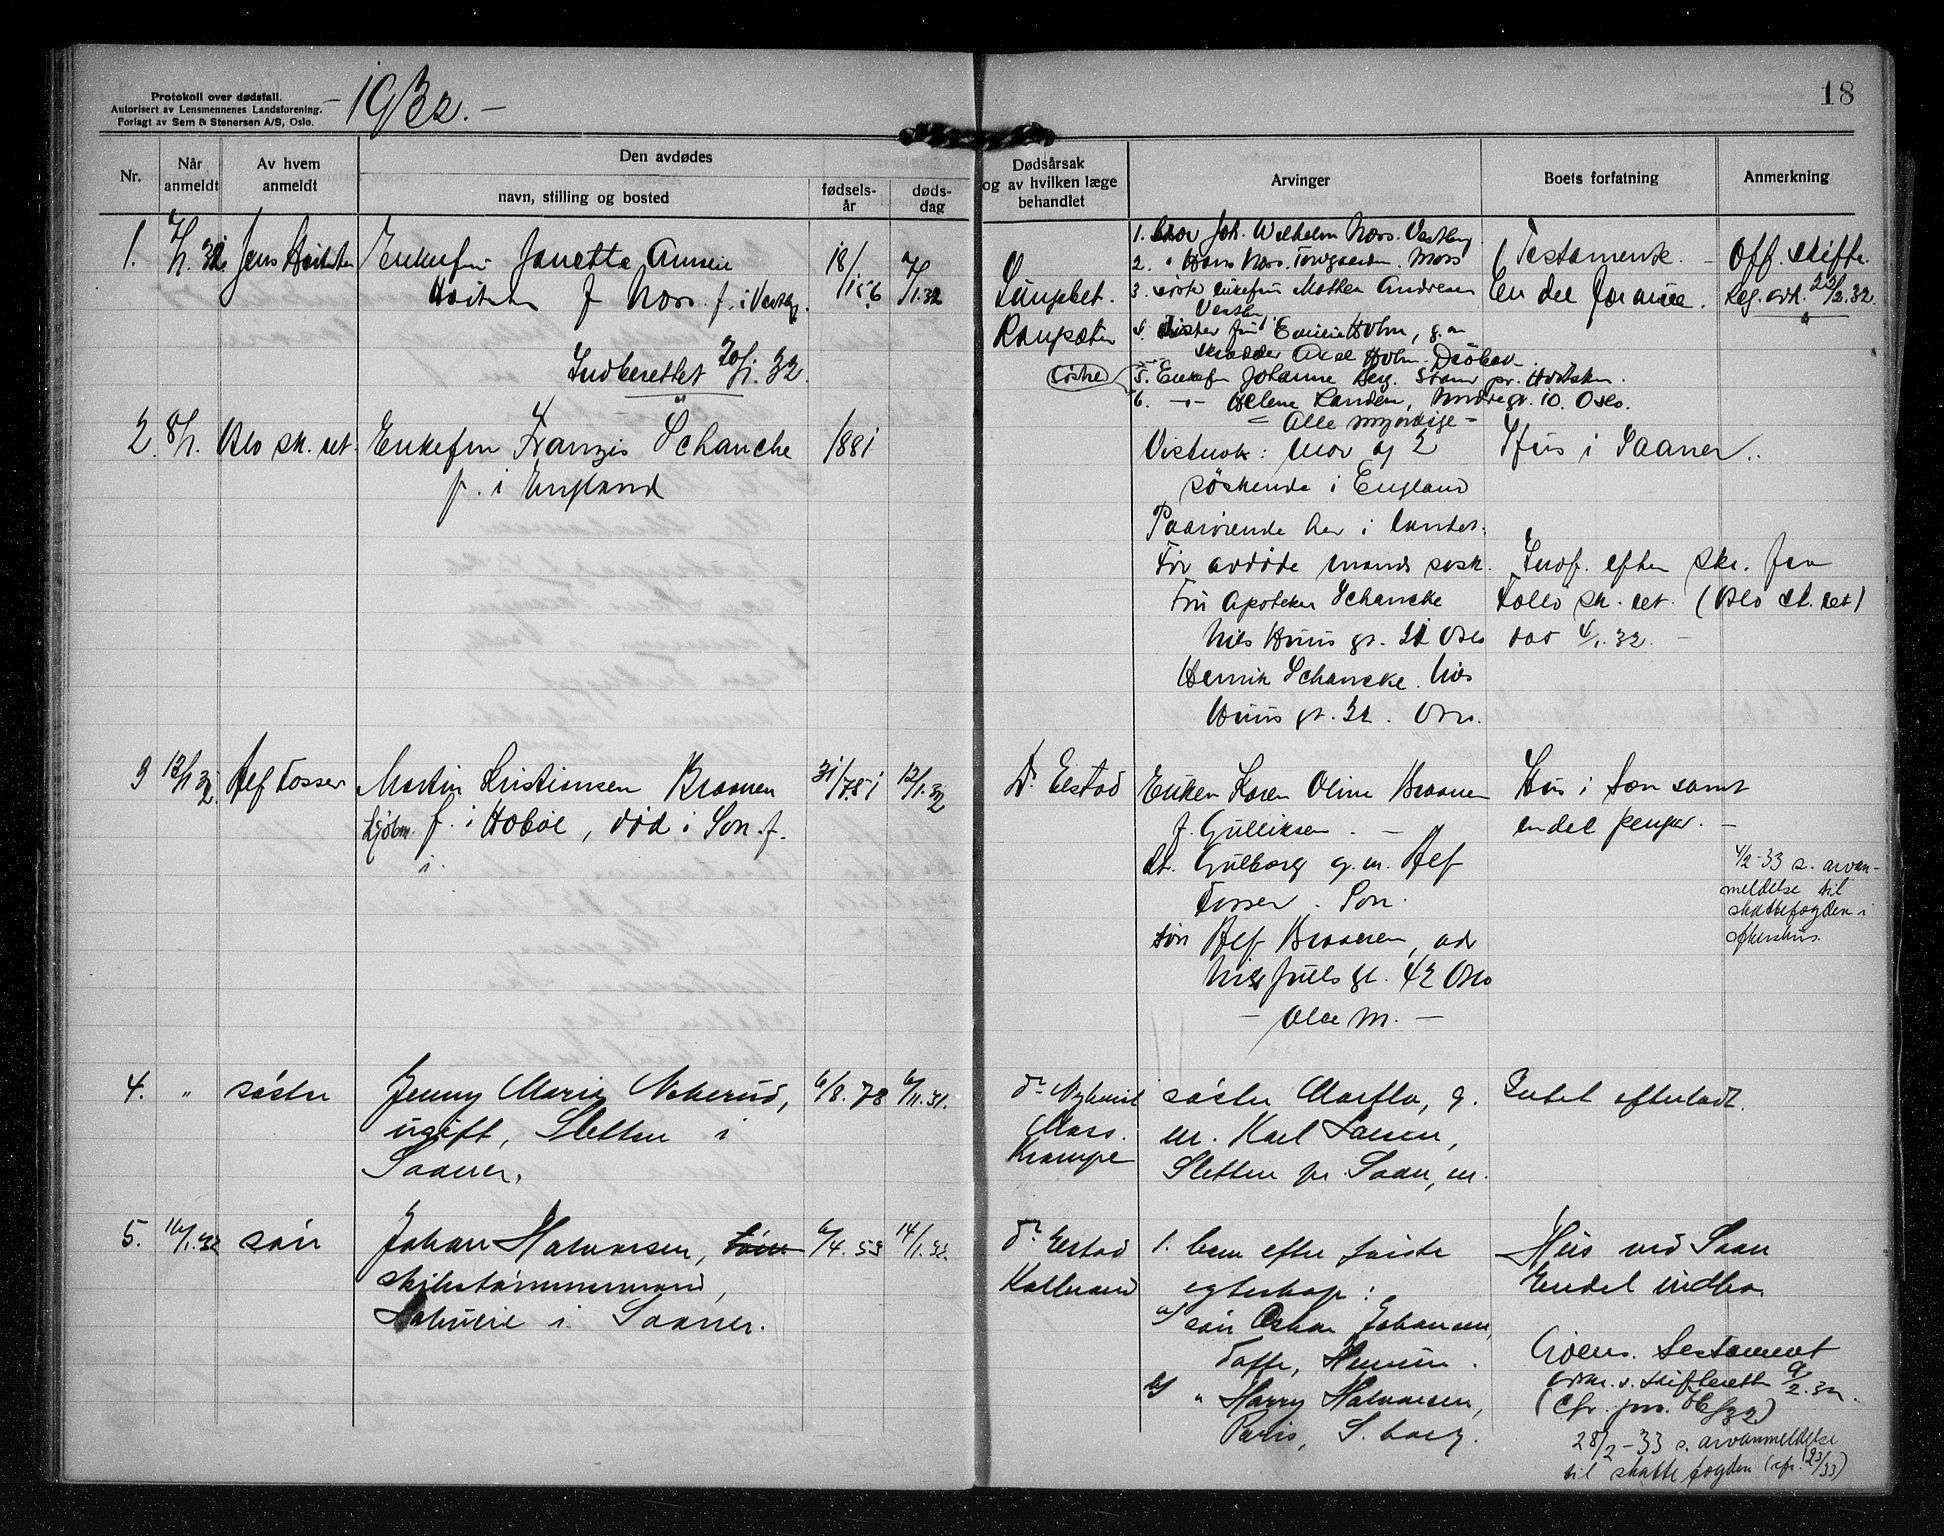 Protokoll over dødsfall.
Autorisert av Lensmennenes Landsforening.
Forlagt av Sem & Stenersen A/S, Oslo.
- 1932. -
18
Nr.
Når anmeldt
Av hvem anmeldt
Den avdødes
navn, stilling og bosted
fødsels-år
døds-dag
Dødsårsak og av hvilken læge behandlet
Arvinger
Boets forfatning
Anmerkning
1.
7/1. 32
Jens
Enkefru Janetta
f. i Vestby.
18/1 56
7/1.32
Indberettet 20/1. 32.
1. Bror Joh. Wilhelm Moss. Vestby
2. " Hans
3. søster enkefru Mathea Andresen
Vestby
4. søster fru Emilie Holm, g.m
skrædder Axel Holm. Drøbak
5. Enkefru Johanne Berg.
6. Helene Landen, 10. Oslo.
= Alle myndige =
Testamente. -
En del formue.
Off. skifte
22/2.32.
2.
8/1.
sk. ret.
Enkefru Franzis Schanche
f. i England
1881
Vistnok: mor og 2
søskende i England
Paarørende her i landet:
For avdøde mands søsk.
Fru Apoteker Schancke
Nils Huus gt. 21 Oslo
Henrik Schancke. Nils
Huus gt. 21. Oslo.
Hus i Saaner.
Indf. efter skr. fra
Follo sk. ret.
dat 4/1. 32. -
3
12/1 32.
Alf Fosser
Martin Kristiansen Braanen
f. i Hobøl, død i Son. f.
i.
31/7.51
12/1.32
Dr. Elstad
Enken Karen Oline Braanen
f. Gulliksen. -
dt. Gulborg g.m. Alf
Fosser. Son.
søn Alf Braanen, adr
Nils Juels gt. 42 Oslo
- Alle M. -
Hus i Son samt
endel penger. -
4/2-33 s. arvan-
meldelse til
skattefogden i
Akershus.
4.
"
søster
Jenny Marie
ugift, Sletten i
Saaner.
6/8. 78
6/11.31.
dr
Moss.
Krampe
søster Martha, g.
m. Karl Larsen,
Sletten pr. Saaner, m.
Intet efterladt.
5.
16/1.32
søn
Johan Halvorsen,
skibstømmermand,
i Saaner.
6/4. 53
14/1.32
dr Elstad
1. barn efter første
egteskap:
a/ søn Oskar Johansen,
Tofte, Hurum.
b/ " Harry Halvorsen,
Paris, S.borg.
Hus ved Saaner
Endel indbo
Gjens. testament
9/2.32.
28/2-33 s. arvanmeldelse
til skattefogden (cfr. 123/33)